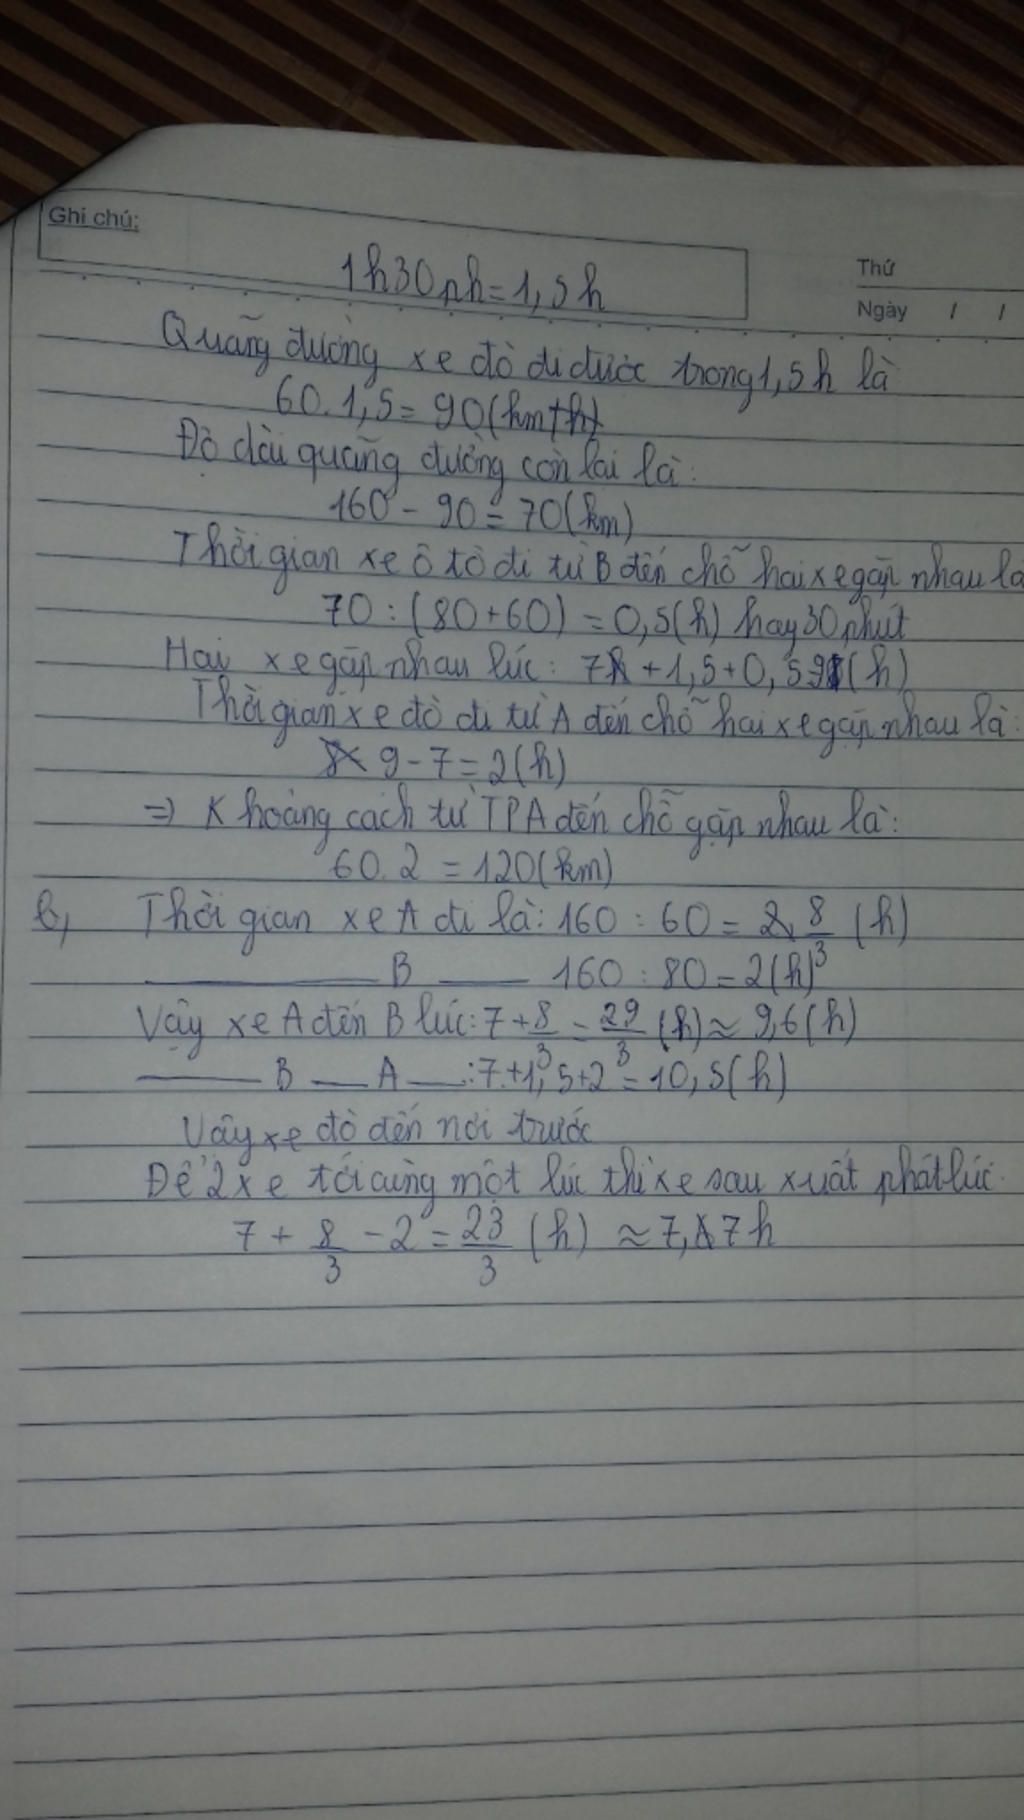 Ghi chú:
Thứ
Ngày / /
1h30ph=1,5h
Quãng đường xe đò đi được trong 1,5h là
60.1,5=90(km/h)
Độ dài quãng đường còn lại là:
160-90=70(km)
Thời gian xe ô tô đi từ B đến chỗ hai xe gặp nhau là
70:(80+60)=0,5(h) hay 30 phút
Hai xe gặp nhau lúc: 7h+1,5+0,5 9(h)
Thời gian xe đò đi từ A đến chỗ hai xe gặp nhau là:
9-7=2(h)
=> Khoảng cách từ TPA đến chỗ gặp nhau là:
60.2=120(km)
b, Thời gian xe A đi là: 160:60= 8/3 (h)
——— B —— 160:80=2(h)
Vậy xe A đến B lúc: 7+8/3=29/3(h)≈9,6(h)
——— B — A —:7+1,5+2=10,5(h)
Vậy xe đò đến nơi trước
Để 2 xe tới cùng một lúc thì xe sau xuất phát lúc
7+8/3-2=23/3(h) ≈7,7h